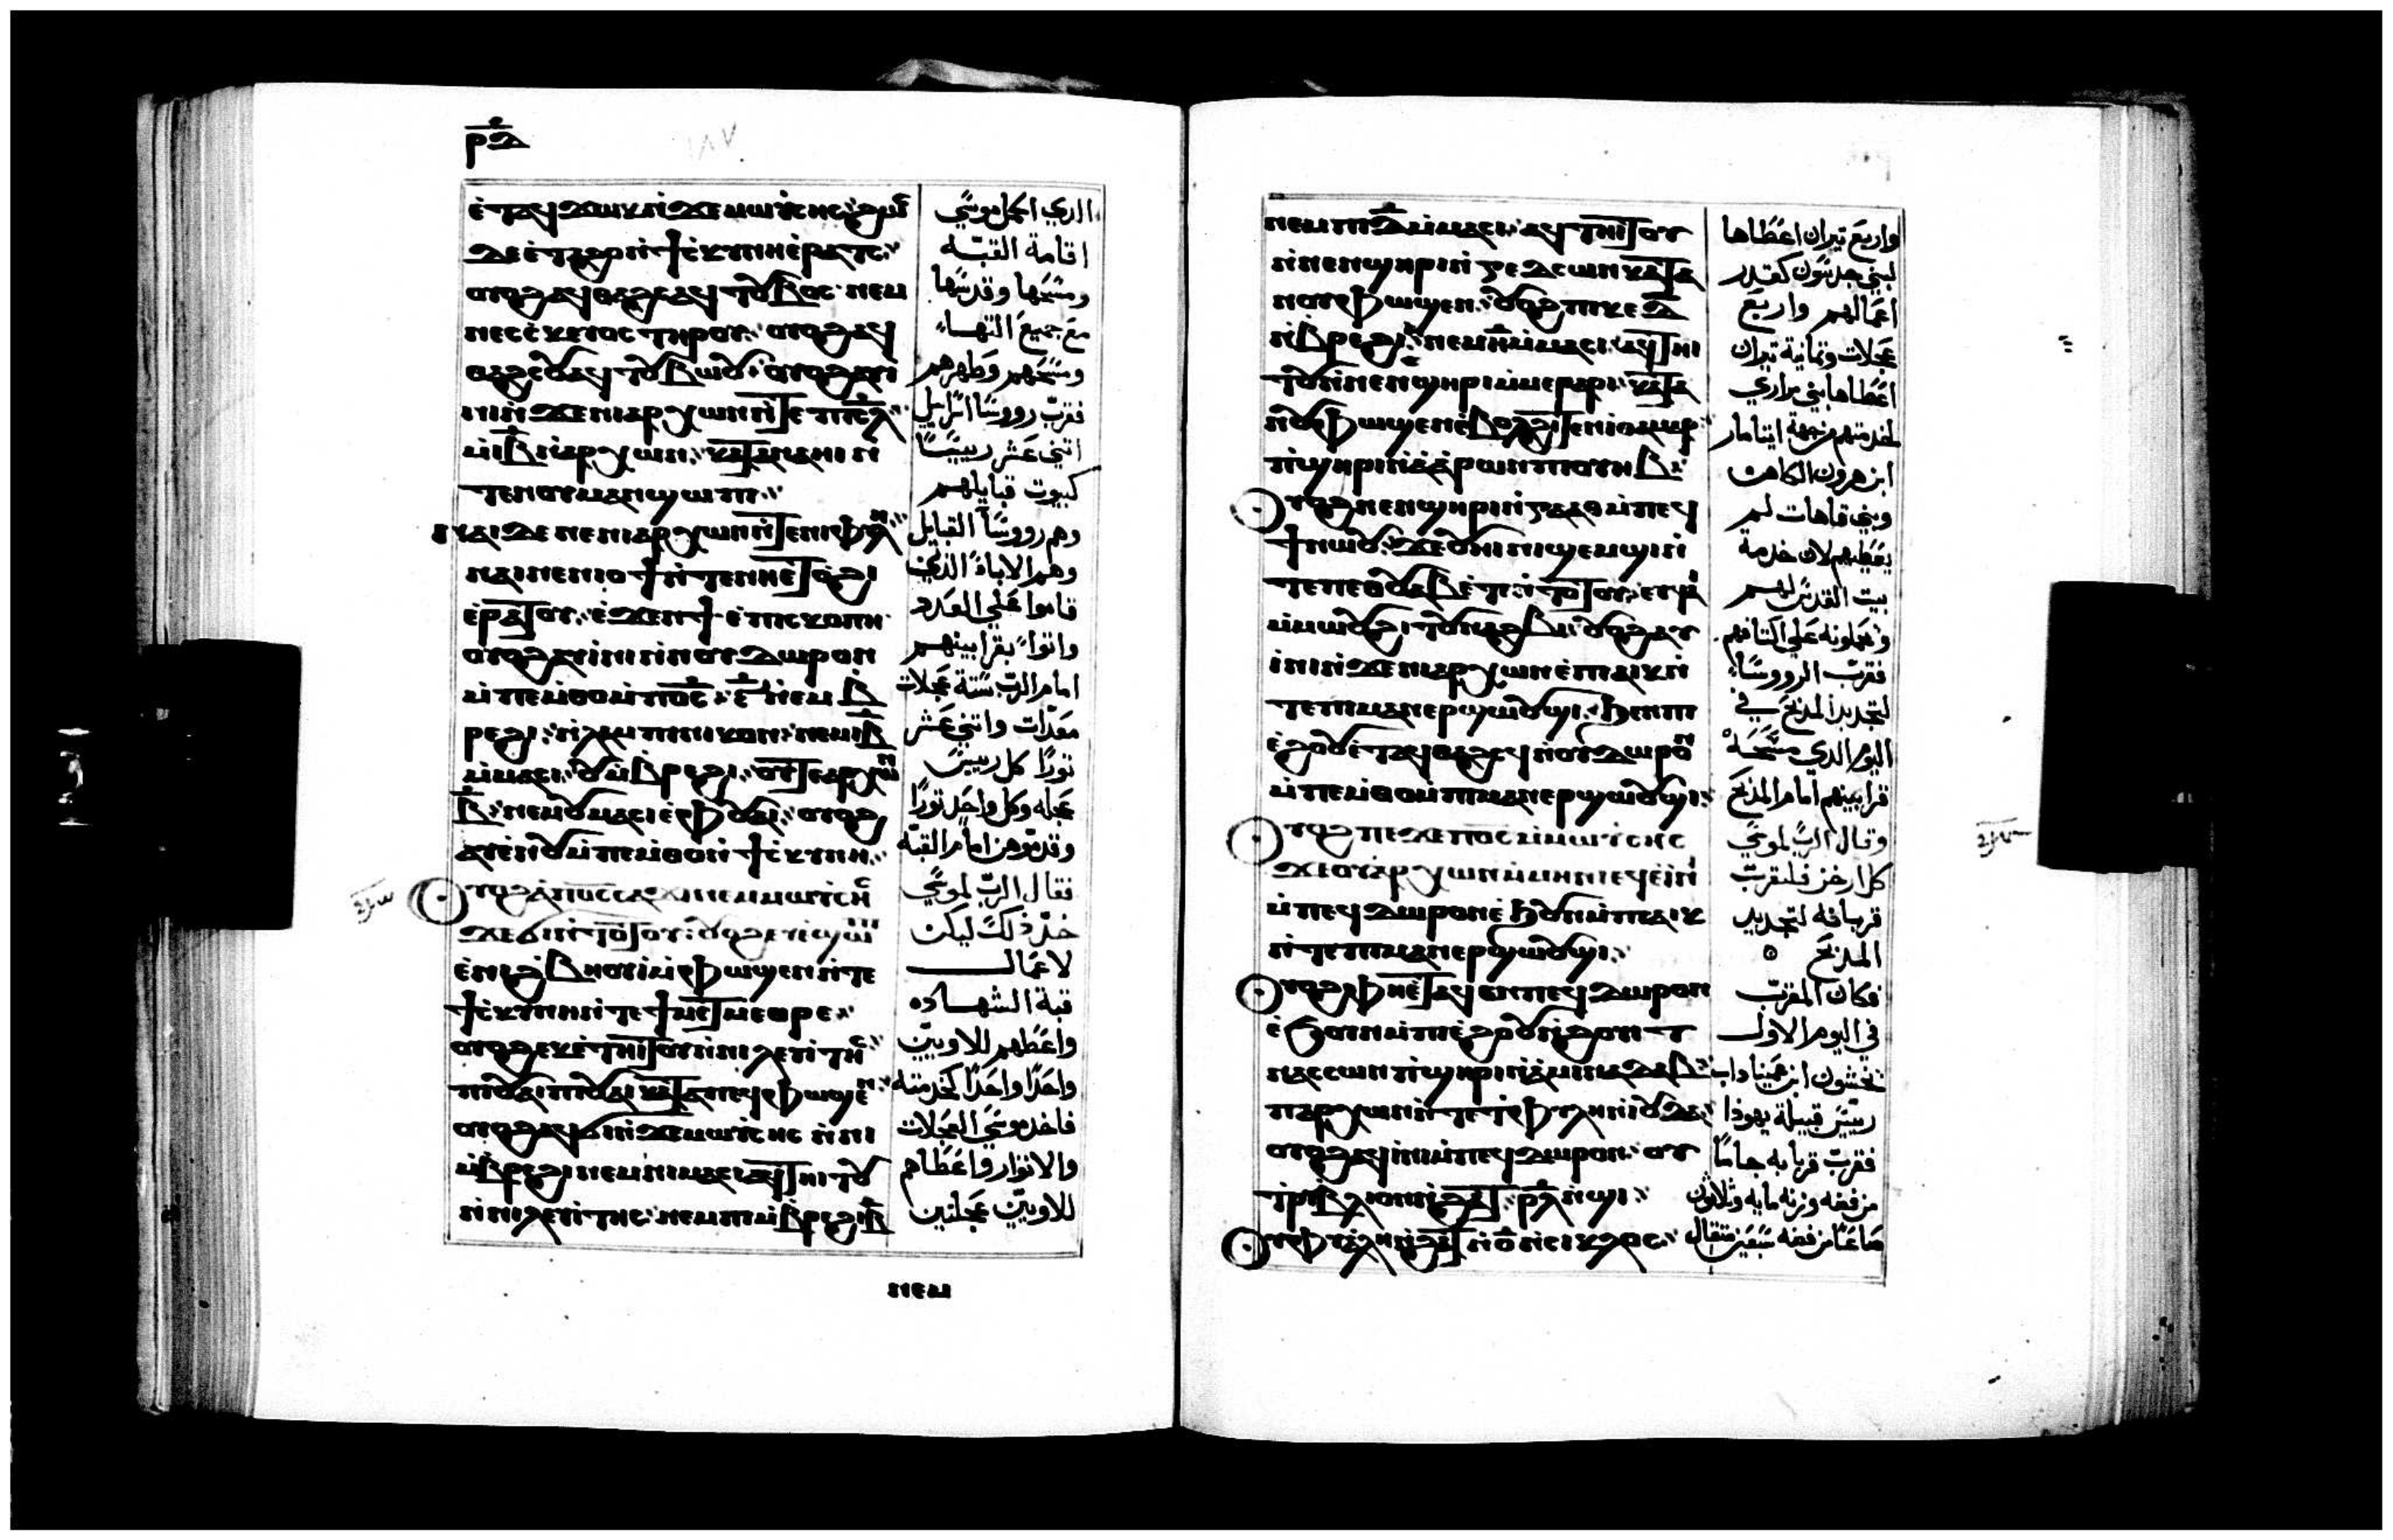 ⲉ̀ⲧⲁϥϫⲱⲕ ⲛ̀ϫⲉ ⲙⲱⲩ̀ⲥⲏⲥ ϩⲱⲥ
ⲇⲉ ⲉ̀ⲧⲁϩⲟ ⲛ̀ϯⲥ̀ⲕⲩⲛⲏ ⲉ̀ⲣⲁⲧⲥ
ⲟⲩⲟϩ ⲁϥⲑⲁϩⲥⲥ ⲁϥⲧⲟⲩⲃⲟⲥ ⲛⲉⲙ
ⲛⲉⲥⲥ̀ⲕⲉⲩⲟⲥ ⲧⲏⲣⲟⲩ ⲟⲩⲟϩ ⲁϥ
ⲑⲁϩⲥⲟⲩ ⲁϥⲧⲟⲩⲃⲱⲟⲩ ⲟⲩⲟϩ ⲁⲩⲓ̀
ⲛⲓⲛ̀ϫⲉ ⲛⲓⲁⲣⲭⲱⲛ ⲛ̀ⲧⲉ ⲡⲓⲥ̅ⲗ̅
ⲙ̀ⲓ̅ⲃ̅ ⲛ̀ⲁⲣⲭⲱⲛ ⲕⲁⲧⲁ ⲛⲓⲏⲓ ⲛ̀
ⲧⲉ ⲛⲟⲩⲙⲁⲛϣⲱⲡⲓ
ⲛⲁⲓ ⲇⲉ ⲛⲉ ⲛⲓⲁⲣⲭⲱⲛ ⲛ̀ⲧⲉ ⲛⲓⲫⲩⲗⲏ
ⲛⲁⲓ ⲛⲉ ⲛⲓⲟϯ ⲛ̀ⲧⲉ ⲛⲏⲉ̀ⲧⲟϩⲓ
ⲉ̀ⲣⲁⲧⲟⲩ ⲉ̀ϫⲉⲛ ϯⲉ̀ⲡⲓⲥⲕⲟⲡⲏ
ⲟⲩⲟϩ ⲁⲩⲓ̀ⲛⲓ ⲛ̀ⲛⲟⲩⲇⲱⲣⲟⲛ
ⲙ̀ⲡⲉⲙ̀ⲑⲟ ⲙ̀ⲡⲟ̅ⲥ̅ ⲋ̅ ⲛ̀ⲉⲙⲃ
ⲣⲉϩⲓ ⲛ̀ⲗⲁⲙⲡⲏⲛⲓⲕⲟⲛ ⲛⲉⲙ ⲓ̅ⲃ̅
ⲙ̀ⲙⲁⲥⲓ ⲟⲩⲙ̀ⲃⲣⲉϩⲓ ⲟⲩⲧⲉ ⲁⲣⲭⲱⲛ
ⲃ̅ ⲛⲉⲙ ⲟⲩⲙⲁⲥⲓ ⲉ̀ⲫⲟⲩⲁⲓ ⲟⲩⲟϩ
ⲁⲩⲉ̀ⲛⲟⲩ ⲙ̀ⲡⲉⲙ̀ⲑⲟ ⲛ̀ϯⲥ̀ⲕⲩⲛⲏ
ⲟⲩⲟϩ ⲁ̀ⲡⲟ̅ⲥ̅ ⲥⲁϫⲓ ⲛⲉⲙ ⲙⲱⲩ̀ⲥⲏⲥ
ϫⲉ ϭⲓ ⲛ̀ⲧⲟⲧⲟⲩ ⲟⲩⲟϩ ⲉⲩⲉ̀ϣⲱⲡⲓ
ⲉ̀ⲛⲓϩ̀ⲃⲏⲟⲩⲓ̀ ⲙ̀ⲫⲱϣⲉⲛ ⲛ̀ⲧⲉ
ϯⲥ̀ⲕⲩⲛⲏ ⲛ̀ⲧⲉ ϯⲙⲉⲧⲙⲉⲑⲣⲉ
ⲟⲩⲟϩ ⲉⲕⲉ̀ⲧⲏⲓⲧⲟⲩ ⲛ̀ⲛⲓⲗⲉⲩⲓ̀ⲧⲏⲥ
ⲡⲓⲟⲩⲁⲓ ⲡⲓⲟⲩⲁⲓ ⲕⲁⲧⲁ ⲡⲉϥⲫⲱϣⲉⲛ
ⲟⲩⲟϩ ⲁϥϭⲓ ⲛ̀ϫⲉ ⲙⲱⲩ̀ⲥⲏⲥ ⲛ̀ⲛⲓ
ⲙ̀ⲃⲣⲉϩⲓ ⲛⲉⲙ ⲛⲓⲙⲁⲥⲓ ⲁϥⲧⲏⲓⲧⲟⲩ
ⲛ̀ⲛⲓⲗⲉⲩⲓ̀ⲧⲏⲥ ⲛⲉⲙ ⲡⲓⲙ̀ⲃⲣⲉϩⲓ ⲃ̅
ⲛⲉⲙ
الدي اكمل موسي
اقامة القبّه
ومسَحَها وقدسَها
مَع جميعَ التهاء
ومسَحَهم وَطهرهم
فقربّ رووسَا اسراييل
اتني عَشر رييسًا
كبيوت قبايلهم
وهم رووسَا القبايل
وهم الاباءُ الدين
قاموا عَلي العَدد
واتوا بقرابينهم
امام الربّ ستة عَجلات
معَدّات واتني عَشر
تورًا كل رييسَين
عَجله وكل واحَد تورًا
وقدموّهن امام القبّه
فقال الربّ لموسَي
خد ذلكَ ليكن
لاعَمال
قبة الشهاده
واعَطهم للاوييّن
واحَدًا واحَدًا كخدمته
فاخد موسَي العَجلات
والاتوار واعَطَاهم
للاوييّن عَجلتين
ⲛⲉⲙ ⲡⲓⲇ̅ ⲙ̀ⲙⲁⲥⲓ ⲁϥⲧⲏⲓⲧⲟⲩ
ⲛ̀ⲛⲉⲛϣⲏⲣⲓ ⲛ̀ⲅⲉⲇⲥⲱⲛ ⲕⲁⲧⲁ
ⲛⲟⲩⲫⲱϣⲉⲛ ⲟⲩⲟϩ ⲡⲓⲕⲉ ⲇ̅
ⲙ̀ⲃⲣⲉϩⲓ ⲛⲉⲙ ⲏ̅ ⲙ̀ⲙⲁⲥⲓ ⲁϥⲧⲏⲓ
ⲧⲟⲩ ⲛ̀ⲛⲉⲛϣⲏⲣⲓ ⲙ̀ⲙⲉⲣⲁⲣⲓ ⲕⲁⲧⲁ
ⲛⲟⲩⲫⲱϣⲉⲛ ⲉ̀ⲃⲟⲗϩⲓⲧⲉⲛ ⲓⲑⲁⲙⲁⲣ
ⲡ̀ϣⲏⲣⲓ ⲛ̀ⲁ̀ⲁ̀ⲣⲱⲛ ⲡⲓⲟⲩⲏⲃ
ⲟⲩⲟϩ ⲛⲉⲛϣⲏⲣⲓ ⲛ̀ⲅⲁⲁⲑ ⲙ̀ⲡⲉϥ
ϯ ⲛⲱⲟⲩ ϫⲉ ⲟⲩⲏⲓ ⲛⲓϣⲉⲙϣⲓ ⲛ̀
ⲧⲉ ⲡⲉⲑⲟⲩⲁⲃ ⲉ̀ⲧⲉⲛ̀ⲧⲟⲧⲟⲩ ⲉⲩϥⲁⲓ
ⲙ̀ⲙⲱⲟⲩ ϩⲓ ⲧⲟⲩⲛⲁϩⲃⲓ ⲟⲩⲟϩ ⲁⲩ
ⲓ̀ⲛⲓ ⲛ̀ϫⲉ ⲛⲓⲁⲣⲭⲱⲛ ⲉ̀ⲡⲁⲓⲕ ⲛ̀
ⲧⲉ ⲡⲓⲙⲁⲛⲉⲣϣⲱⲟⲩϣⲓ ϧⲉⲛ ⲡⲓ
ⲉ̀ϩⲟⲟⲩ ⲉ̀ⲧⲁϥⲑⲁϩⲥϥ ⲛ̀ⲟⲩⲇⲱⲣⲟⲛ
ⲙ̀ⲡⲉⲙ̀ⲑⲟ ⲙ̀ⲡⲓⲙⲁⲛⲉⲣϣⲱⲟⲩϣⲓ
ⲟⲩⲟϩ ⲡⲉϫⲉ ⲡⲟ̅ⲥ̅ ⲙ̀ⲙⲱⲩ̀ⲥⲏⲥ
ϫⲉ ⲟⲩⲁ̀ⲣⲭⲱⲛ ⲙ̀ⲙⲏⲛⲓ ⲉϥⲉ̀ⲓ̀ⲛⲓ
ⲙ̀ⲡⲉϥⲇⲱⲣⲟⲛ ⲉ̀ϧⲟⲩⲛ ⲙ̀ⲡⲁⲓⲕ
ⲛ̀ⲧⲉ ⲡⲓⲙⲁⲛⲉⲣϣⲱⲟⲩϣⲓ
ⲟⲩⲟϩ ⲫⲏⲉ̀ⲧⲁϥⲉⲛ ⲡⲉϥⲇⲱⲣⲟⲛ
ⲉ̀ϧⲟⲩⲛ ⲙ̀ⲡⲓⲉ̀ϩⲟⲟⲩ ⲛ̀ϩⲟⲩⲓⲧ
ⲛⲁⲥⲥⲱⲛ ⲡ̀ϣⲏⲣⲓ ⲛ̀ⲁ̀ⲙⲓⲛⲁⲇⲁⲃ
ⲡⲁⲣⲭⲱⲛ ⲛ̀ⲧⲉ ⲧ̀ⲫⲩⲗⲏ ⲛ̀ⲓⲟⲩⲇⲁ
ⲟⲩⲟϩ ⲁϥⲓ̀ⲛⲓ ⲙ̀ⲡⲉϥⲇⲱⲣⲟⲛ ⲟⲩ
ⲧⲣⲓⲃⲗⲓⲟⲛ ⲛ̀ϩⲁⲧ ⲣ̅ⲗ̅ ⲛ̀ϣⲓ
ⲟⲩⲫⲓⲁⲗⲏ ⲛ̀ϩⲁⲧ ⲛ̀ⲟ̅ ⲛ̀ⲥⲓⲕⲗⲟⲥ
واربعَ تيران اعَطَاها
لبني جدسَون كقدر
اعَمالهم واربعَ
عَجلات وتمانية تيران
اعَطاها بني مراري
لخدمتهم من جهة ايتامار
ابن هرون الكاهن
وبني قاهات لم
يعَطيهم لان خدمة
بيت القدسَ لهم
يحَملونه عَلي اكتافهم
فقربّ الرووسَاء
لتجديد المدبحَ في
اليوم الدي مسَحَهُ
قرابينهم امام المدبحَ
وقال الربّ لموسَي
كل ارخن فليقربّ
قربانه لتجديد
المدبحَ ه
فكان المقربّ
في اليوم الاول
نحَشون ابن عَميناداب
رييسَ قبيلة يهودا
فقربّ قربانه جامًا
من فضه وزنه مايه وتلاتون
صَاعًا من فضه سَبعَين متقال